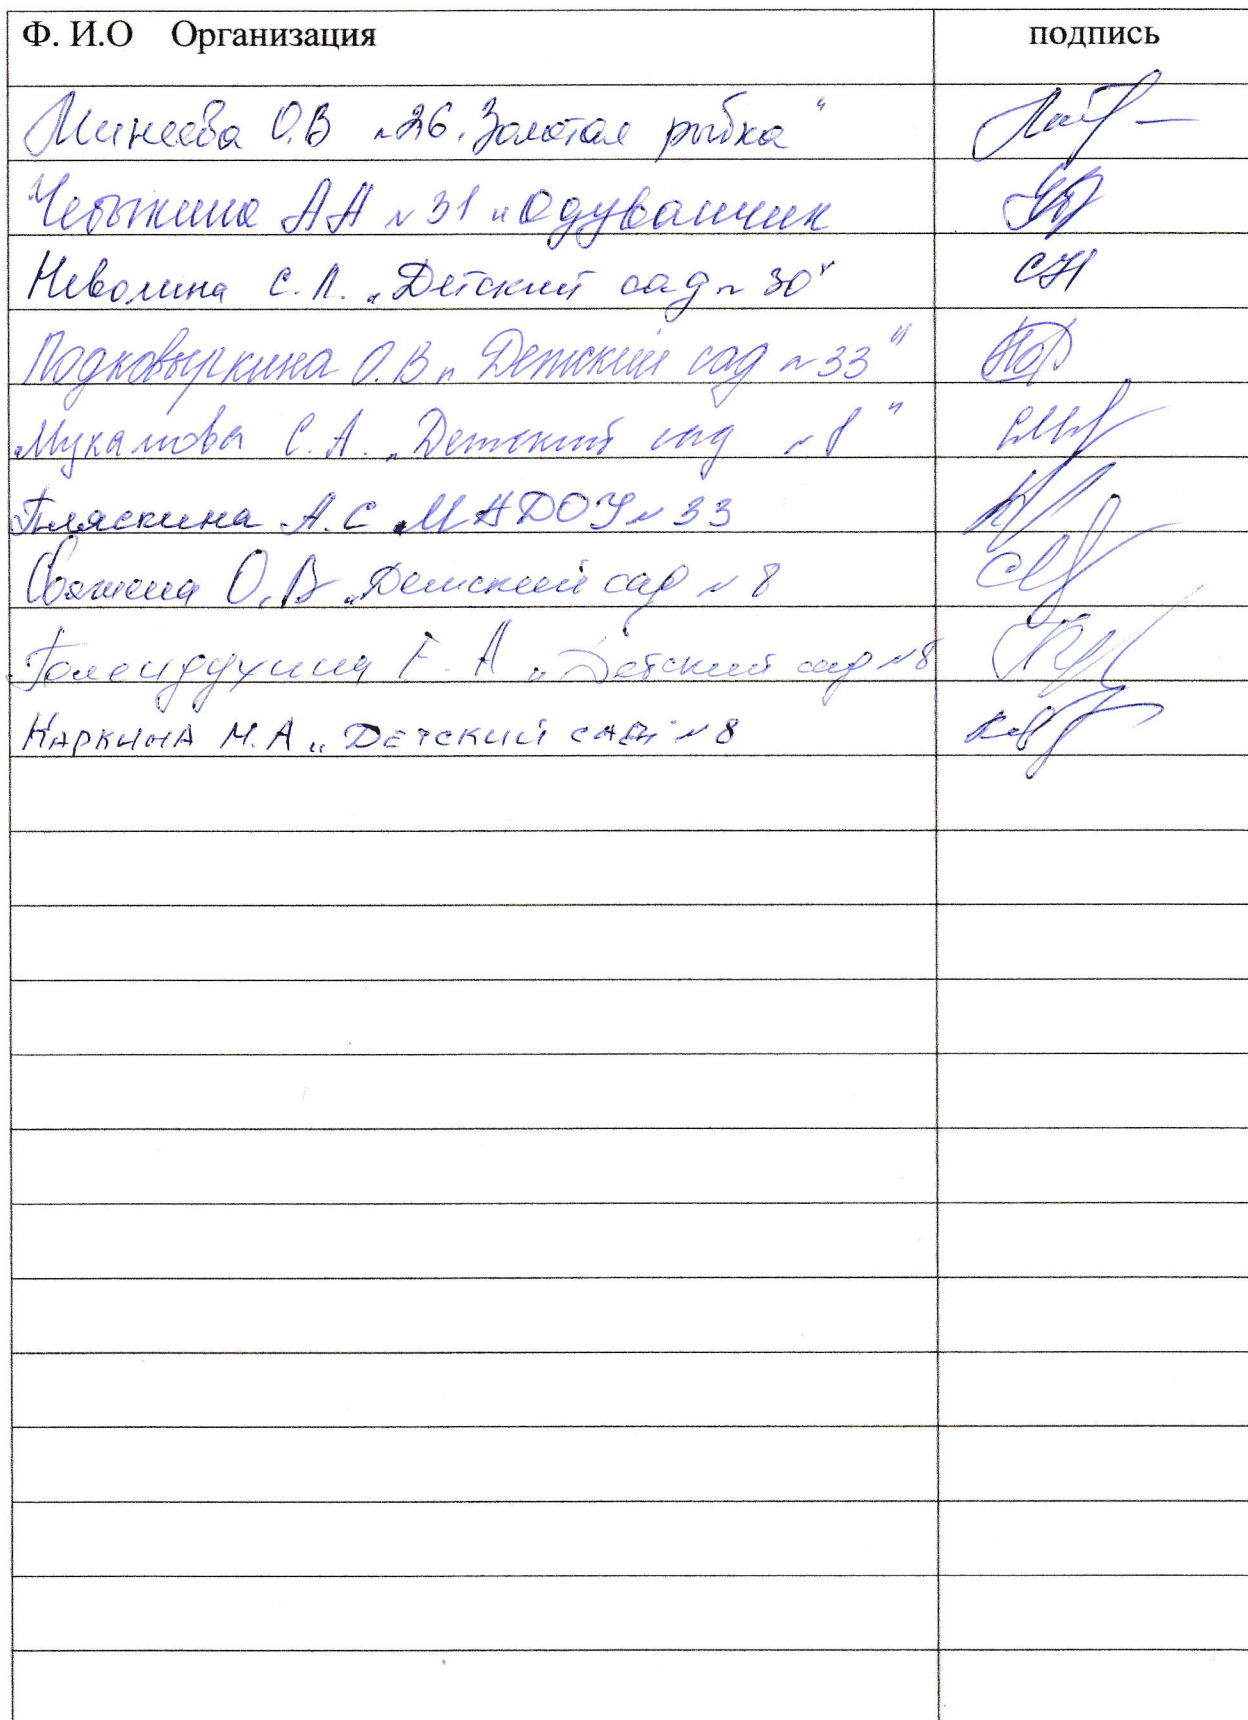 Ф. И.О Организация подпись
Минеева О.В №26 "Золотая рыбка"
Чебыкина АА №31 "Одуванчик
Неволина С.Л. "Детский сад №30"
Подковыркина О.В "Детский сад №33"
С.А. "Детский сад №8"
Пляскина А.С МАДОУ №33
О.В "Детский сад №8
Голендухина Е.А "Детский сад №8
Каркина М.А "Детский сад №8